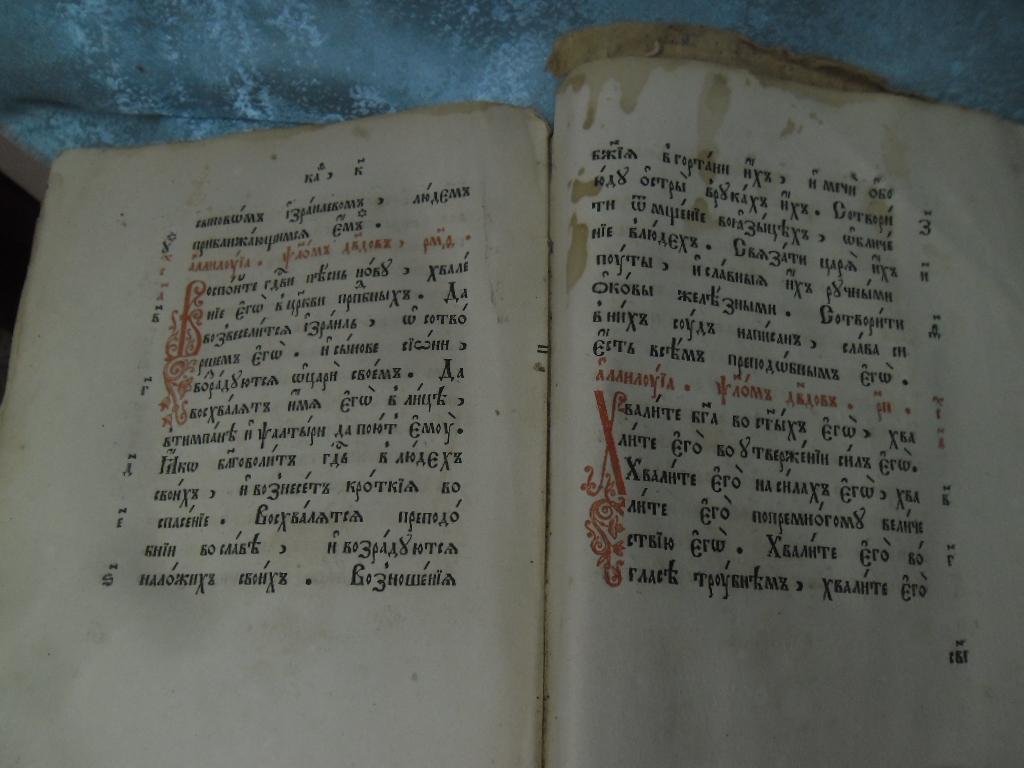 ка҃, к҃
сыновѡ́мъ і҆зра́илевомъ, лю́демъ
приближа́ющимся є҆мꙋ̀.
а҆ллилꙋ́їа. ѱало́мъ дв҃довъ, рм҃ѳ.
Воспо́йте гдⷭ҇ви пѣ́снь но́вꙋ, хвале́
нїе є҆гѡ̀ в цр҃кви прпⷣбныхъ. Да
возвесели́тся і҆зра́иль, ѡ҆ сотво́
ршемъ є҆гѡ̀. и҆ сы́нове сїѡ́ни,
возра́дꙋются ѡ҆ царѝ свое́мъ. Да
восхва́лятъ и҆́мя є҆гѡ̀ в ли́цѣ,
в тимпа́нѣ и҆ ѱалты́ри да пою́тъ є҆мꙋ̀.
Ꙗ҆́кѡ бл҃говоли́тъ гдⷭ҇ь в лю́дехъ
свои́хъ, и҆ вознесе́тъ кро́ткїя во
спасе́нїе. Восхва́лятся преподо́
бнїи во сла́вѣ, и҆ возра́дꙋются
на ло́жихъ свои́хъ. Возноше́нїя
бж҃їя в горта́ни и҆́хъ, и҆ мечѝ ѻ҆бо
ю́дꙋ ѻ҆стры̀ в рꙋка́хъ и҆́хъ. Сотвори́
ти ѿмще́нїе во ꙗ҆зы́цѣхъ, ѡ҆бличе́
нїе в лю́дехъ. Связа́ти царя̀ и҆́хъ
пꙋ́ты, и҆ сла́вныя и҆́хъ рꙋчны́ми
ѻ҆ко́вы желѣ́зными. Сотвори́ти
в ни́хъ сꙋ́дъ напи́санъ, сла́ва си
є҆́сть всѣ́мъ преподо́бнымъ є҆гѡ̀.
а҆ллилꙋ́їа. ѱало́мъ дв҃довъ. рн҃.
Хвали́те бг҃а во ст҃ы́хъ є҆гѡ̀, хва
ли́те є҆гѡ̀ во ᲂу҆твержє́нїи си́лъ є҆гѡ̀.
Хвали́те є҆го̀ на си́лахъ є҆гѡ̀, хва
ли́те є҆го̀ по премно́гомꙋ вели́че
ствїю є҆гѡ̀. Хвали́те є҆го̀ во́
гласѣ трꙋ́бнѣмъ, хвали́те є҆го̀